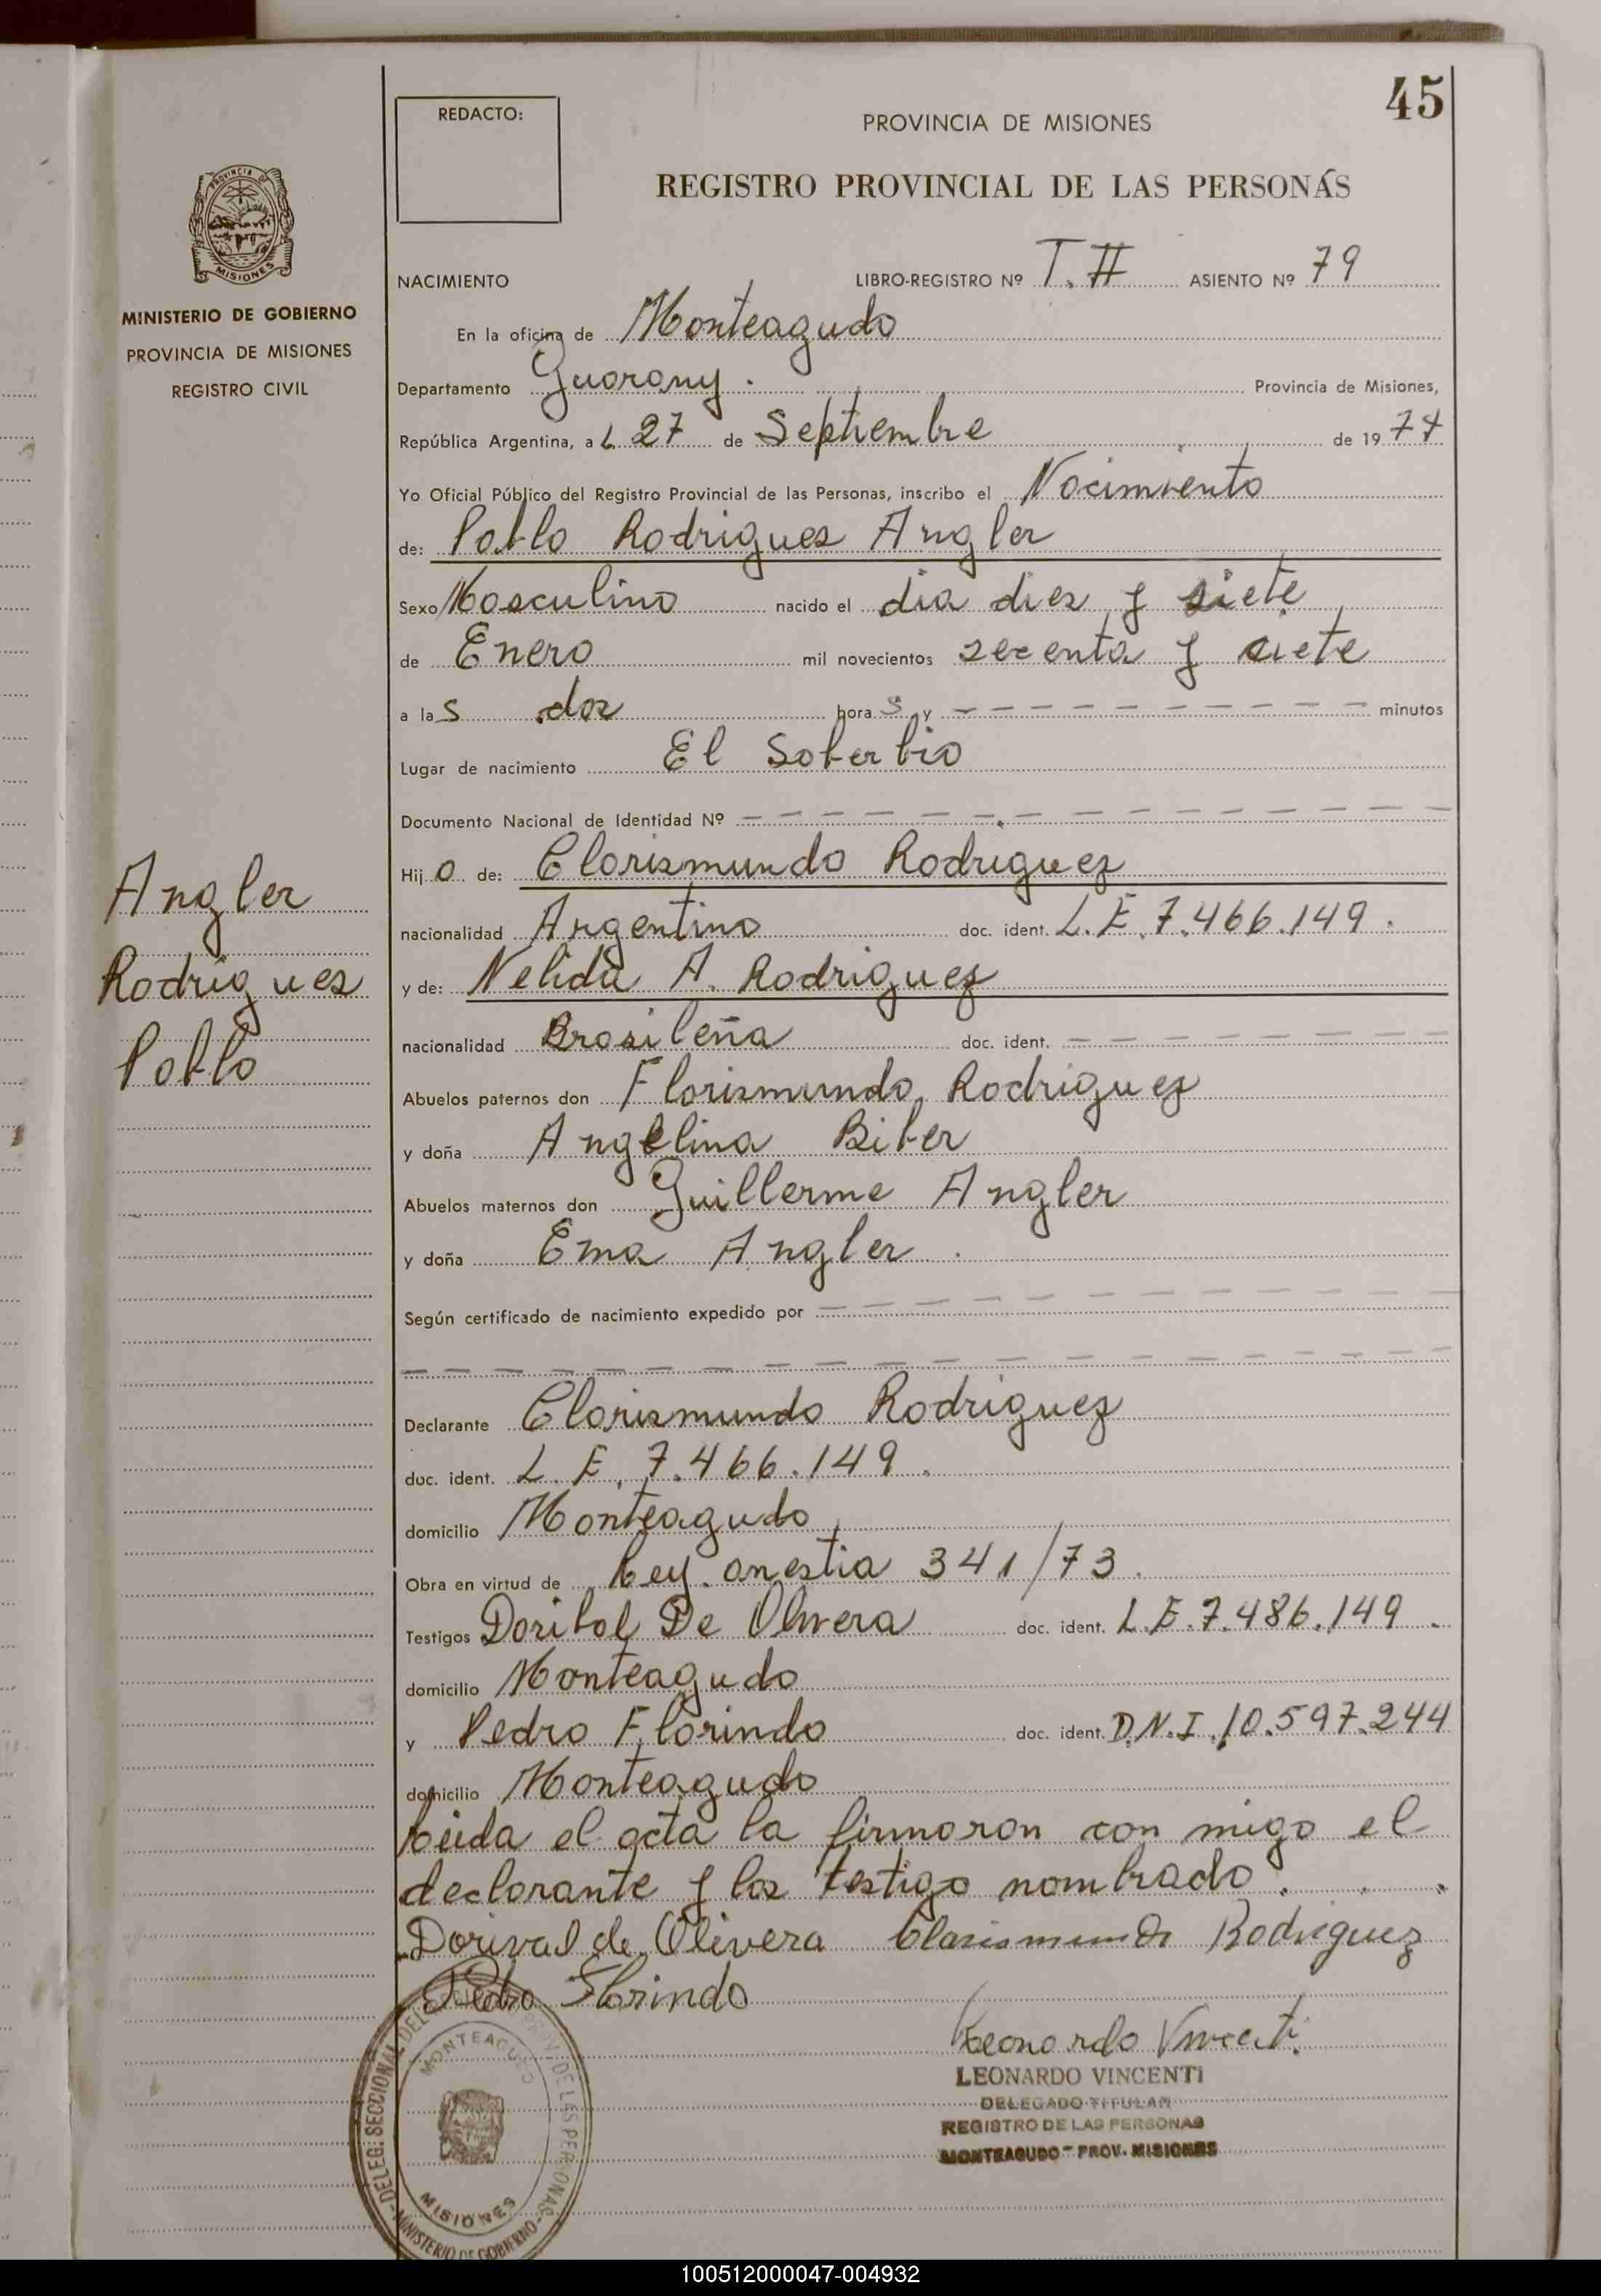 45
REDACTO:
PROVINCIA DE MISIONES
REGISTRO PROVINCIAL DE LAS PERSONÁS
PROVINCIA DE
MISIONES
MINISTERIO DE GOBIERNO
PROVINCIA DE MISIONES
REGISTRO CIVIL
NACIMIENTO LIBRO-REGISTRO Nº T. II ASIENTO Nº 79
En la oficina de Monteagudo
Departamento Guarany. Provincia de Misiones,
República Argentina, a L 27 de Septiembre de 1974
Yo Oficial Público del Registro Provincial de las Personas, inscribo el Nacimiento
de: Pablo Rodrigues Angler
Sexo Masculino nacido el dia diez y siete
de Enero mil novecientos secenta y siete
a las dos horas y — — — — — — — — minutos
Lugar de nacimiento El Soberbio
Documento Nacional de Identidad Nº — — — — — — — — — —
Hijo de: Clorismundo Rodriguez
nacionalidad Argentino doc. ident. L.E. 7.466.149.
y de: Nelida A. Rodriguez
nacionalidad Brasileña doc. ident. — — — — — — —
Abuelos paternos don Florismundo Rodriguez
y doña Angelina Biber
Abuelos maternos don Guillerme Angler
y doña Ema Angler.
Según certificado de nacimiento expedido por — — — — — — — — —
— — — — — — — — — — — — — — — —
Declarante Clorismundo Rodriguez
doc. ident. L. E. 7.466.149.
domicilio Monteagudo
Obra en virtud de Ley. anestia 341/73.
Testigos Doribal De Olivera doc. ident. L.E. 7.486.149.
domicilio Monteagudo
y Pedro Florindo doc. ident. D.N.I. 10.597.244
domicilio Monteagudo
Leida el acta la firmaron con migo el
declarante y los testigo nombrado. . .
Dorival de Olivera Clarismundo Rodriguez
Pedro Florindo
Leonardo Vincenti
LEONARDO VINCENTI
DELEGADO TITULAR
REGISTRO DE LAS PERSONAS
MONTEAGUDO - PROV. MISIONES
Angler
Rodrigues
Pablo
DELEG. SECCIONAL DEL PROV. DE LES PERSONAS
MONTEAGUDO
MISIONES
MINISTERIO DE GOBIERNO
100512000047-004932